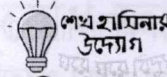 শেখ হাসিনার
উদ্যোগ
ঘরে ঘরে